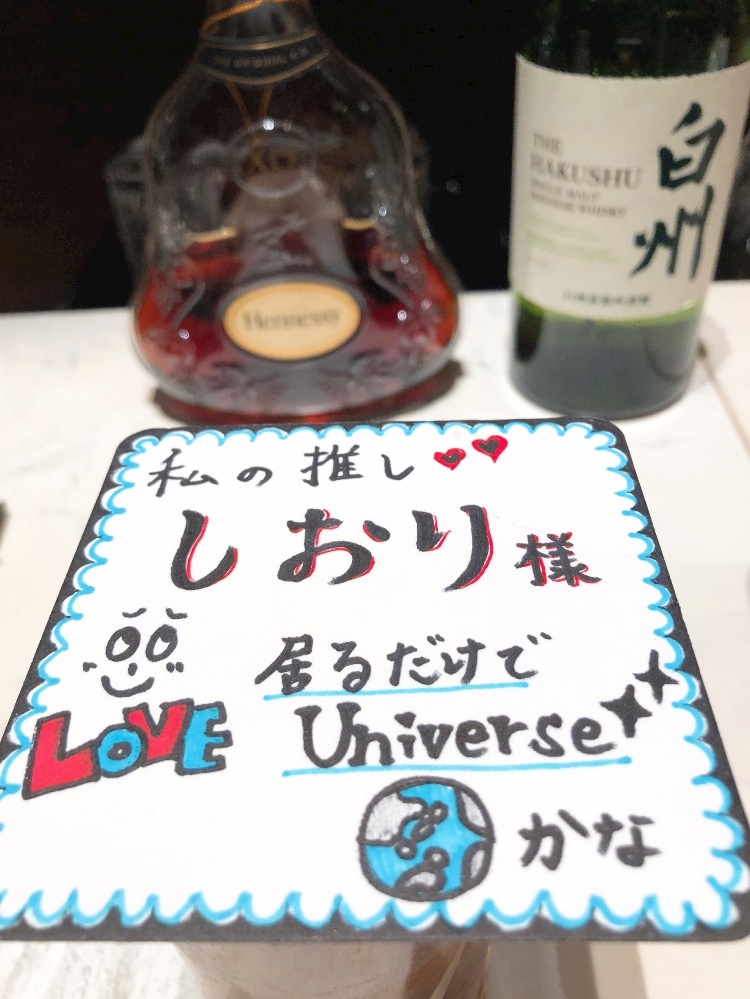 X.O
Hennessy
THE
HAKUSHU
SINGLE MALT
JAPANESE WHISKY
白州
私の推し
しおり様
居るだけで
Universe
LOVE
かな